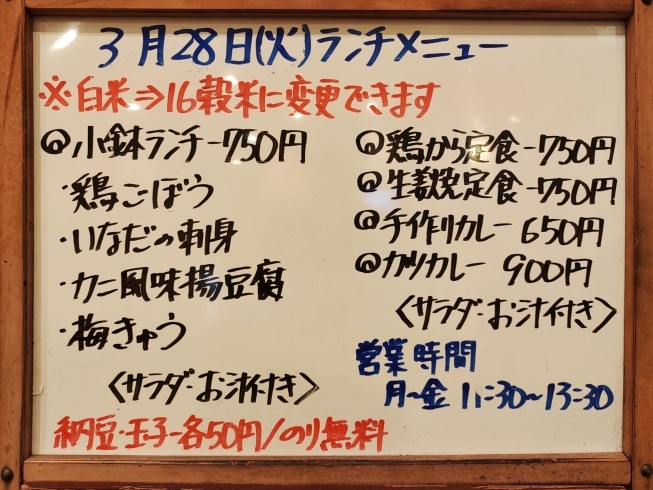 3月28日(火)ランチメニュー
※白米⇒16穀米に変更できます
◎小鉢ランチ-750円
・鶏ごぼう
・いなだの刺身
・カニ風味揚豆腐
・梅きゅう
〈サラダ・お汁付き〉
納豆・玉子-各50円/のり無料
◎鶏から定食-750円
◎生姜焼定食-750円
◎手作りカレー 650円
◎カツカレー 900円
〈サラダ・お汁付き〉
営業時間
月〜金 11:30〜13:30